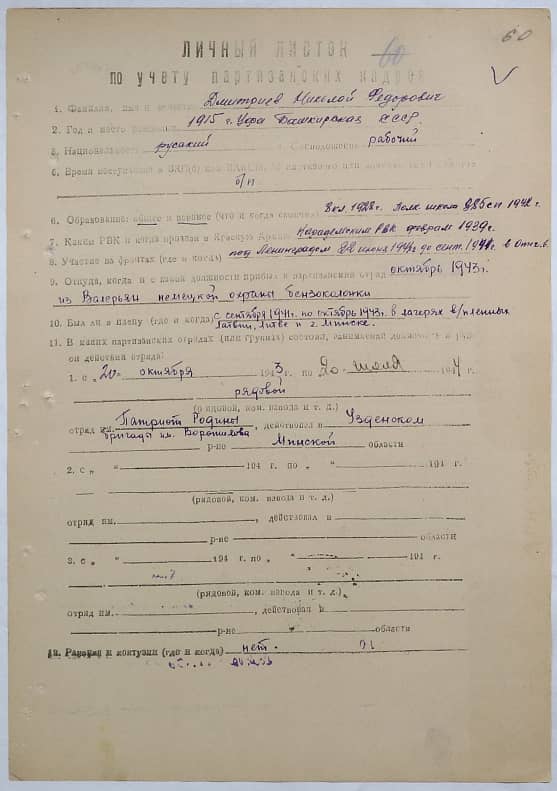 60
ЛИЧНЫЙ ЛИСТОК 60
по учету партизанских кадров
1. Фамилия, имя и отчество Дмитриев Николай Федорович
2. Год и место рождения 1915 г. Уфа Башкирская ССР.
3. Национальность русский 4. Соцположение рабочий
5. Время вступления в партию или
б/п
6. Образование: общее и военное (что и когда окончил) 3 кл. 1928 г. Полк. школа 1941 г.
7. Каким РВК и когда призван в Красную Армию РВК февраль 1939 г.
8. Участие на фронтах (где и когда) под Ленинградом 22 июня 1941 г. до сент. 1941 г. в
9. Откуда, когда и с какой должности прибыл в партизанский отряд октябрь 1943 г.
из немецкой охраны бензоколонки
10. Был ли в плену (где и когда) с сентября 1941 г. по октябрь 1943 г. в лагерях в/пленных
Латвии, Литве и г. Минске.
11. В каких партизанских отрядах (или группах) состоял, занимаемая должность и район
ои действия отряда:
1. с „ 20 “ октября 1943 г. по „ 20 “ июля 1944 г.
рядовой
(рядовой, ком. взвода и т. д.)
отряд им. Патриот Родины, действовал в Узденском
бригады им. Ворошилова р-не Минской области
2. с „ “ 194 г. по „ “ 194 г.
(рядовой, ком. взвода и т. д.)
отряд им. , действовал в
р-не области
3. с „ “ 194 г. по „ “ 194 г.
(рядовой, ком. взвода и т. д.)
отряд им. , действовал в
р-не области
12. Ранения и контузии (где и когда) нет.